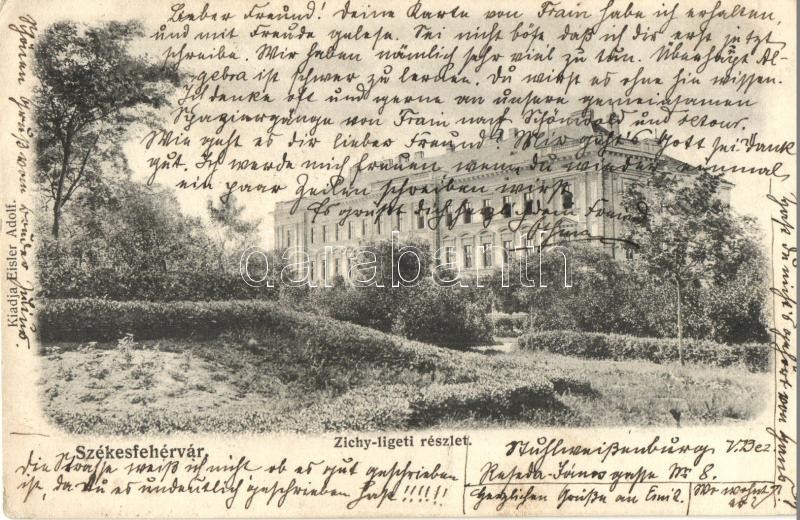 Lieber Freund! Deine Karte von Frain habe ich erhalten,
und mit Freude gelesen. Sei nicht böse daß ich dir erst jetzt
schreibe. Wir haben nämlich sehr viel zu tun. Überhaupt Al-
gebra ist schwer zu lernen. Du wirst es ohne hin wissen.
Ich denke oft und gerne an unsere gemeinsamen
Spaziergänge von Frain nach Schönwald und retour.
Wie geht es dir lieber Freund? Mir geht's Gott sei Dank
gut. Ich werde mich freuen wenn du wieder einmal
ein paar Zeilen schreiben wirst.
Es grüßt dich herzlich dein Freund
Schönen Gruß von Bruder Julius.
Kiadja Eisler Adolf.
qarabarit.com
Székesfehérvár.
Zichy-ligeti részlet.
Die Strasse weiß ich nicht ob es gut geschrieben
ist, da Du es undeutlich geschrieben hast!!!!!!
Stuhlweißenburg V. Bez.
Reseda-János gasse Nr 8.
Herzlichen Grüße an Emil
Wo wohnt
er?